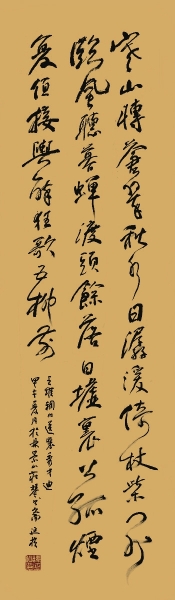 寒山轉蒼翠秋水日潺湲倚杖柴門外
臨風聽暮蟬渡頭餘落日墟裏上孤煙
復值接輿醉狂歌五柳前
王維輞川裴秀才迪
甲午夏月於